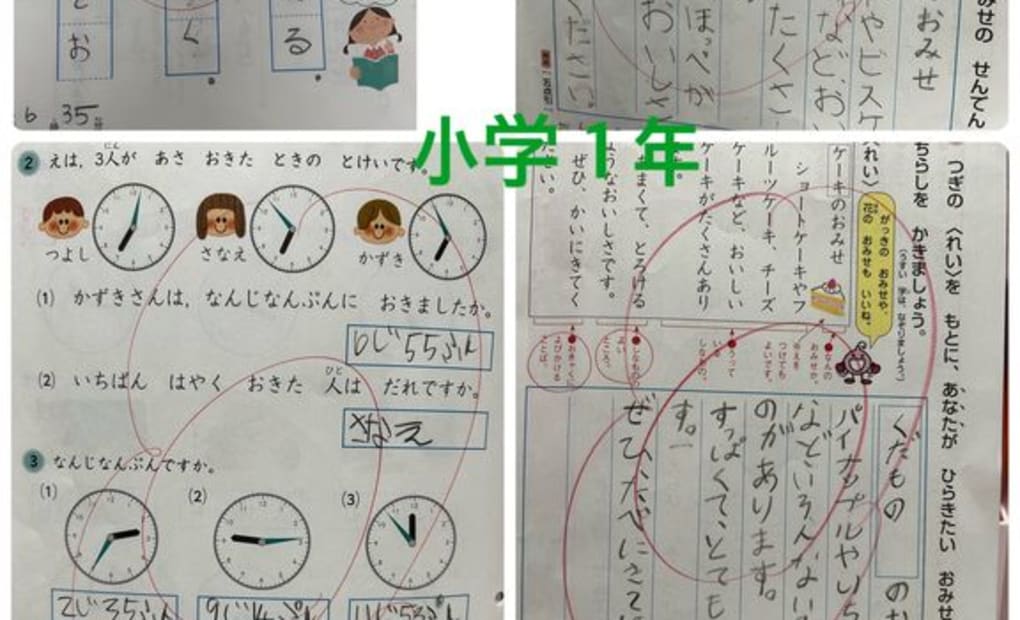 と
お
く
る
35
おみせの せんでん
おみせ
やビスケ
など、お
たくさ
ほっぺが
おいしさ
ください。
小学1年
2 えは，3人が あさ おきた ときの とけいです。
つよし
さなえ
かずき
(1) かずきさんは，なんじなんぷんに おきましたか。
6じ55ふん
(2) いちばん はやく おきた 人は だれですか。
さなえ
3 なんじなんぷんですか。
(1)
(2)
(3)
2じ35ふん
9じ14ぷん
11じ53ぷん
つぎの 〈れい〉を もとに、あなたが ひらきたい おみせ
ちらしを かきましょう。
(うすい 字は、なぞりましょう。)
がっきの おみせや、
花の おみせも いいね。
〈れい〉
ケーキのおみせ
ショートケーキやフ
ルーツケーキ、チーズ
ケーキなど、おいしい
ケーキがたくさんあり
ます。
あまくて、とろける
ようなおいしさです。
ぜひ、かいにきてく
ださい。
なんの
おみせか、
なまえを
つけても
よいです。
うって
いる
しなもの。
しなものの
よい
ところ。
おきゃくに
よびかける
ことば。
くだもの のお
パイナップルやいち
などいろんないろ
のがあります。
すっぱくて、とても
す。
ぜひ、たべにきて